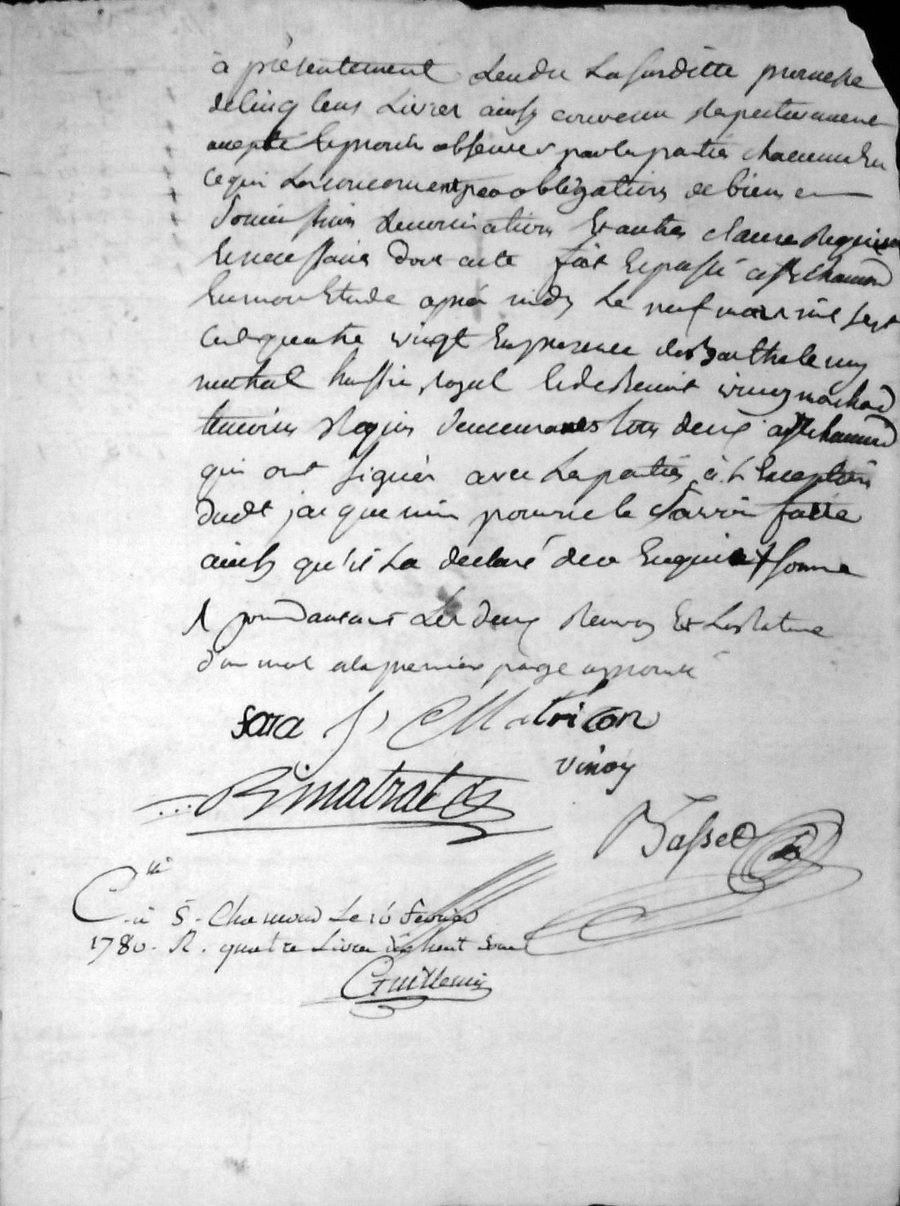 à présentement rendu La susditte promesse
de cinq cens Livres ainsy convenu respectivement
accepté Et promis observer par les parties chacune En
ce qui Les concernent par obligations de biens
Soumissions Renonciations Et autres clauses Requises
Et necessaires dont acte fait Et passé a St chamond
En mon Etude après midy Le neuf mil sept
cent quatre vingt En presence de Barthelemy
matrat huissier Royal Et de Benoit vinoy
temoins Requis demeurants tous deux a St chamond
qui ont signés avec Les parties à L'Exception
dud jacquemin pour ne le sçavoir faire
ainsy qu'il La declaré de ce Enquis Et sommé
approuvant Les deux Renvoy Et La rature
d'un mot a la premiere page approuvé
sera J C Matricon
vinoy
B matrat
Basset
C lé à S. Chamond Le 16 fevrier
1780. R. quatre Livres dix huit sous
Guillemin